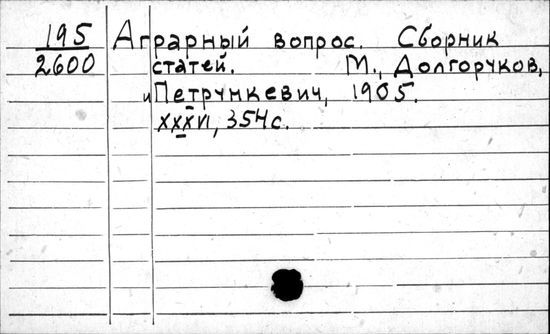 195 Аграрный вопрос. Сборник
2600 статей. М., Долгоруков,
и Петрункевич, 1905.
XXXVI, 354 с.